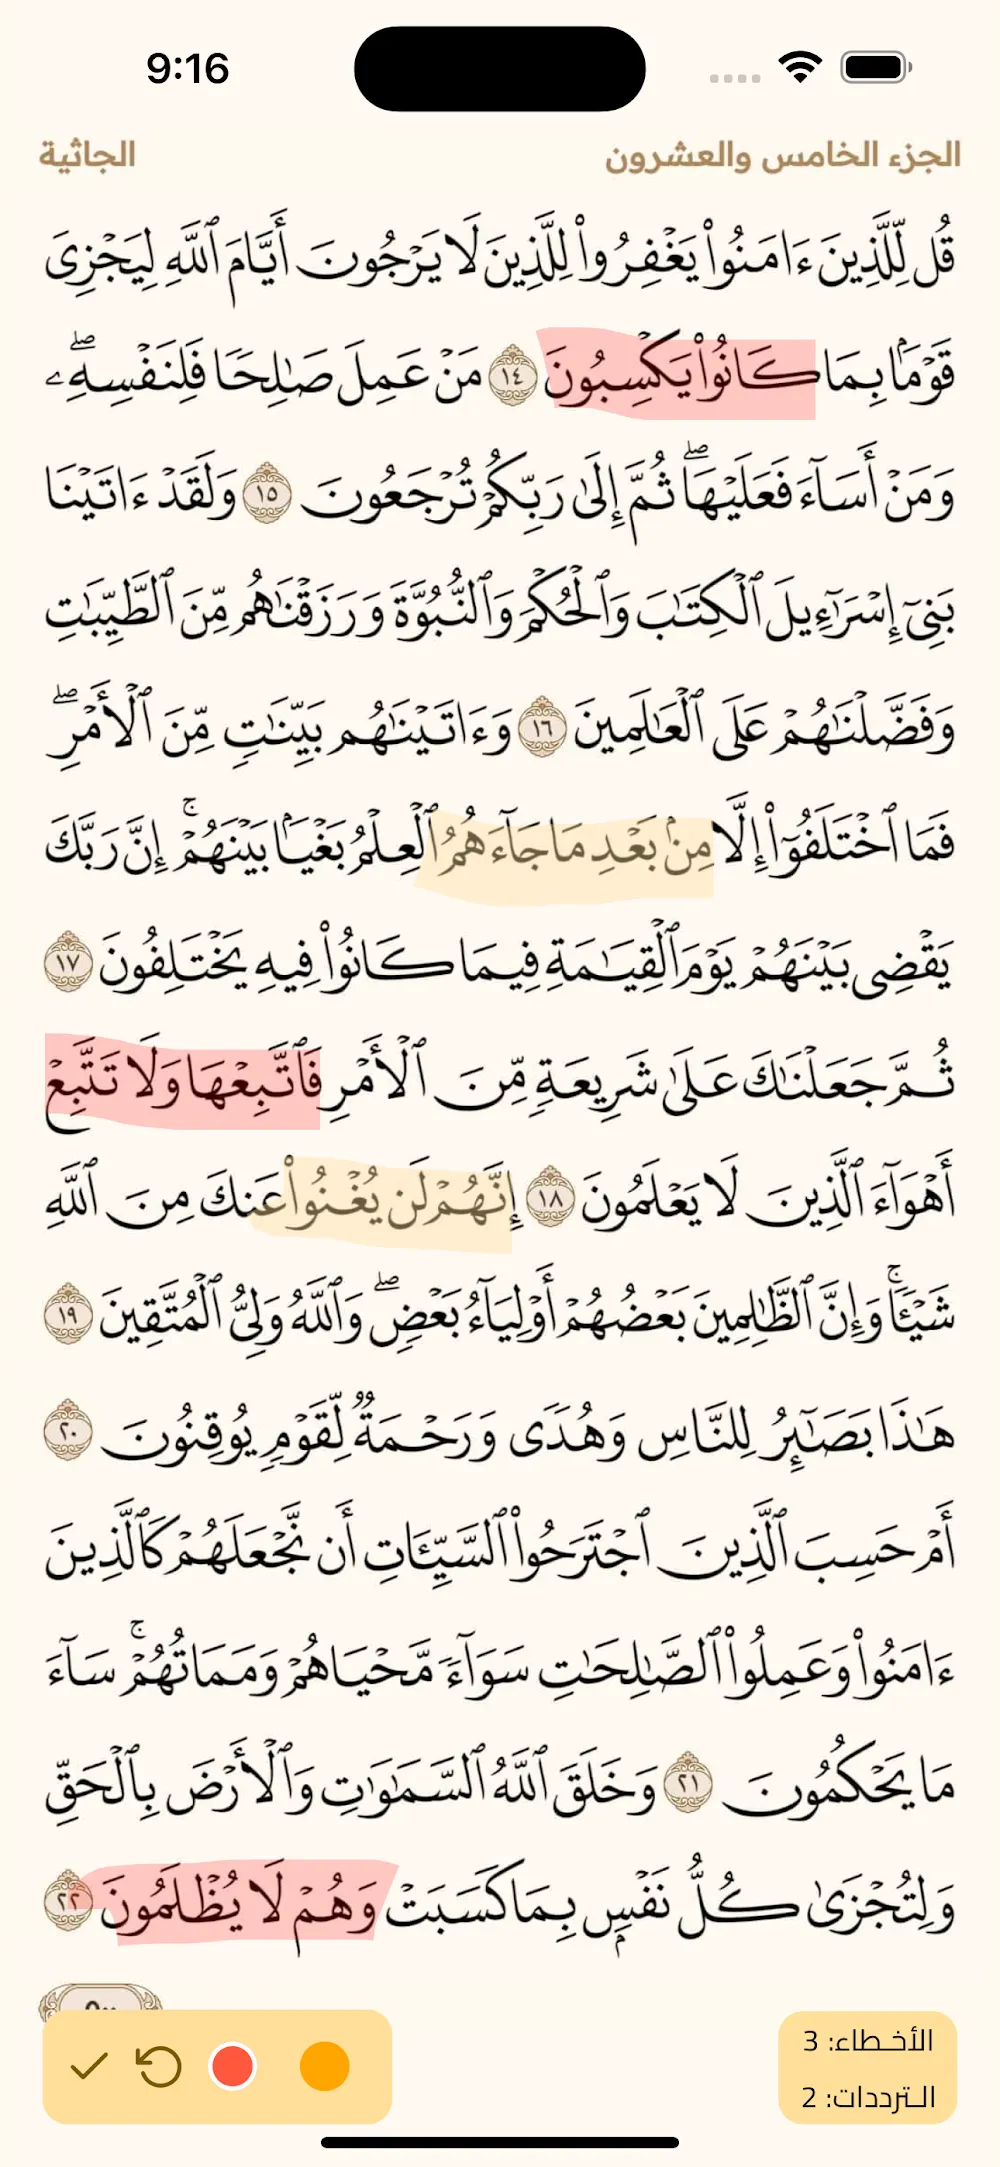 9:16
الجزء الخامس والعشرون
الجاثية
قُل لِّلَّذِينَ ءَامَنُوا۟ يَغْفِرُوا۟ لِلَّذِينَ لَا يَرْجُونَ أَيَّامَ ٱللَّهِ لِيَجْزِىَ
قَوْمًۢا بِمَا كَانُوا۟ يَكْسِبُونَ ١٤ مَنْ عَمِلَ صَـٰلِحًا فَلِنَفْسِهِۦ ۖ
وَمَنْ أَسَآءَ فَعَلَيْهَا ۖ ثُمَّ إِلَىٰ رَبِّكُمْ تُرْجَعُونَ ١٥ وَلَقَدْ ءَاتَيْنَا
بَنِىٓ إِسْرَٰٓءِيلَ ٱلْكِتَـٰبَ وَٱلْحُكْمَ وَٱلنُّبُوَّةَ وَرَزَقْنَـٰهُم مِّنَ ٱلطَّيِّبَـٰتِ
وَفَضَّلْنَـٰهُمْ عَلَى ٱلْعَـٰلَمِينَ ١٦ وَءَاتَيْنَـٰهُم بَيِّنَـٰتٍ مِّنَ ٱلْأَمْرِ ۖ
فَمَا ٱخْتَلَفُوٓا۟ إِلَّا مِنۢ بَعْدِ مَا جَآءَهُمُ ٱلْعِلْمُ بَغْيًۢا بَيْنَهُمْ ۚ إِنَّ رَبَّكَ
يَقْضِى بَيْنَهُمْ يَوْمَ ٱلْقِيَـٰمَةِ فِيمَا كَانُوا۟ فِيهِ يَخْتَلِفُونَ ١٧
ثُمَّ جَعَلْنَـٰكَ عَلَىٰ شَرِيعَةٍ مِّنَ ٱلْأَمْرِ فَٱتَّبِعْهَا وَلَا تَتَّبِعْ
أَهْوَآءَ ٱلَّذِينَ لَا يَعْلَمُونَ ١٨ إِنَّهُمْ لَن يُغْنُوا۟ عَنكَ مِنَ ٱللَّهِ
شَيْـًٔا ۚ وَإِنَّ ٱلظَّـٰلِمِينَ بَعْضُهُمْ أَوْلِيَآءُ بَعْضٍ ۖ وَٱللَّهُ وَلِىُّ ٱلْمُتَّقِينَ ١٩
هَـٰذَا بَصَـٰٓئِرُ لِلنَّاسِ وَهُدًى وَرَحْمَةٌ لِّقَوْمٍ يُوقِنُونَ ٢٠
أَمْ حَسِبَ ٱلَّذِينَ ٱجْتَرَحُوا۟ ٱلسَّيِّـَٔاتِ أَن نَّجْعَلَهُمْ كَٱلَّذِينَ
ءَامَنُوا۟ وَعَمِلُوا۟ ٱلصَّـٰلِحَـٰتِ سَوَآءً مَّحْيَاهُمْ وَمَمَاتُهُمْ ۚ سَآءَ
مَا يَحْكُمُونَ ٢١ وَخَلَقَ ٱللَّهُ ٱلسَّمَـٰوَٰتِ وَٱلْأَرْضَ بِٱلْحَقِّ
وَلِتُجْزَىٰ كُلُّ نَفْسٍۭ بِمَا كَسَبَتْ وَهُمْ لَا يُظْلَمُونَ ٢٢
الأخطاء: 3
الترددات: 2